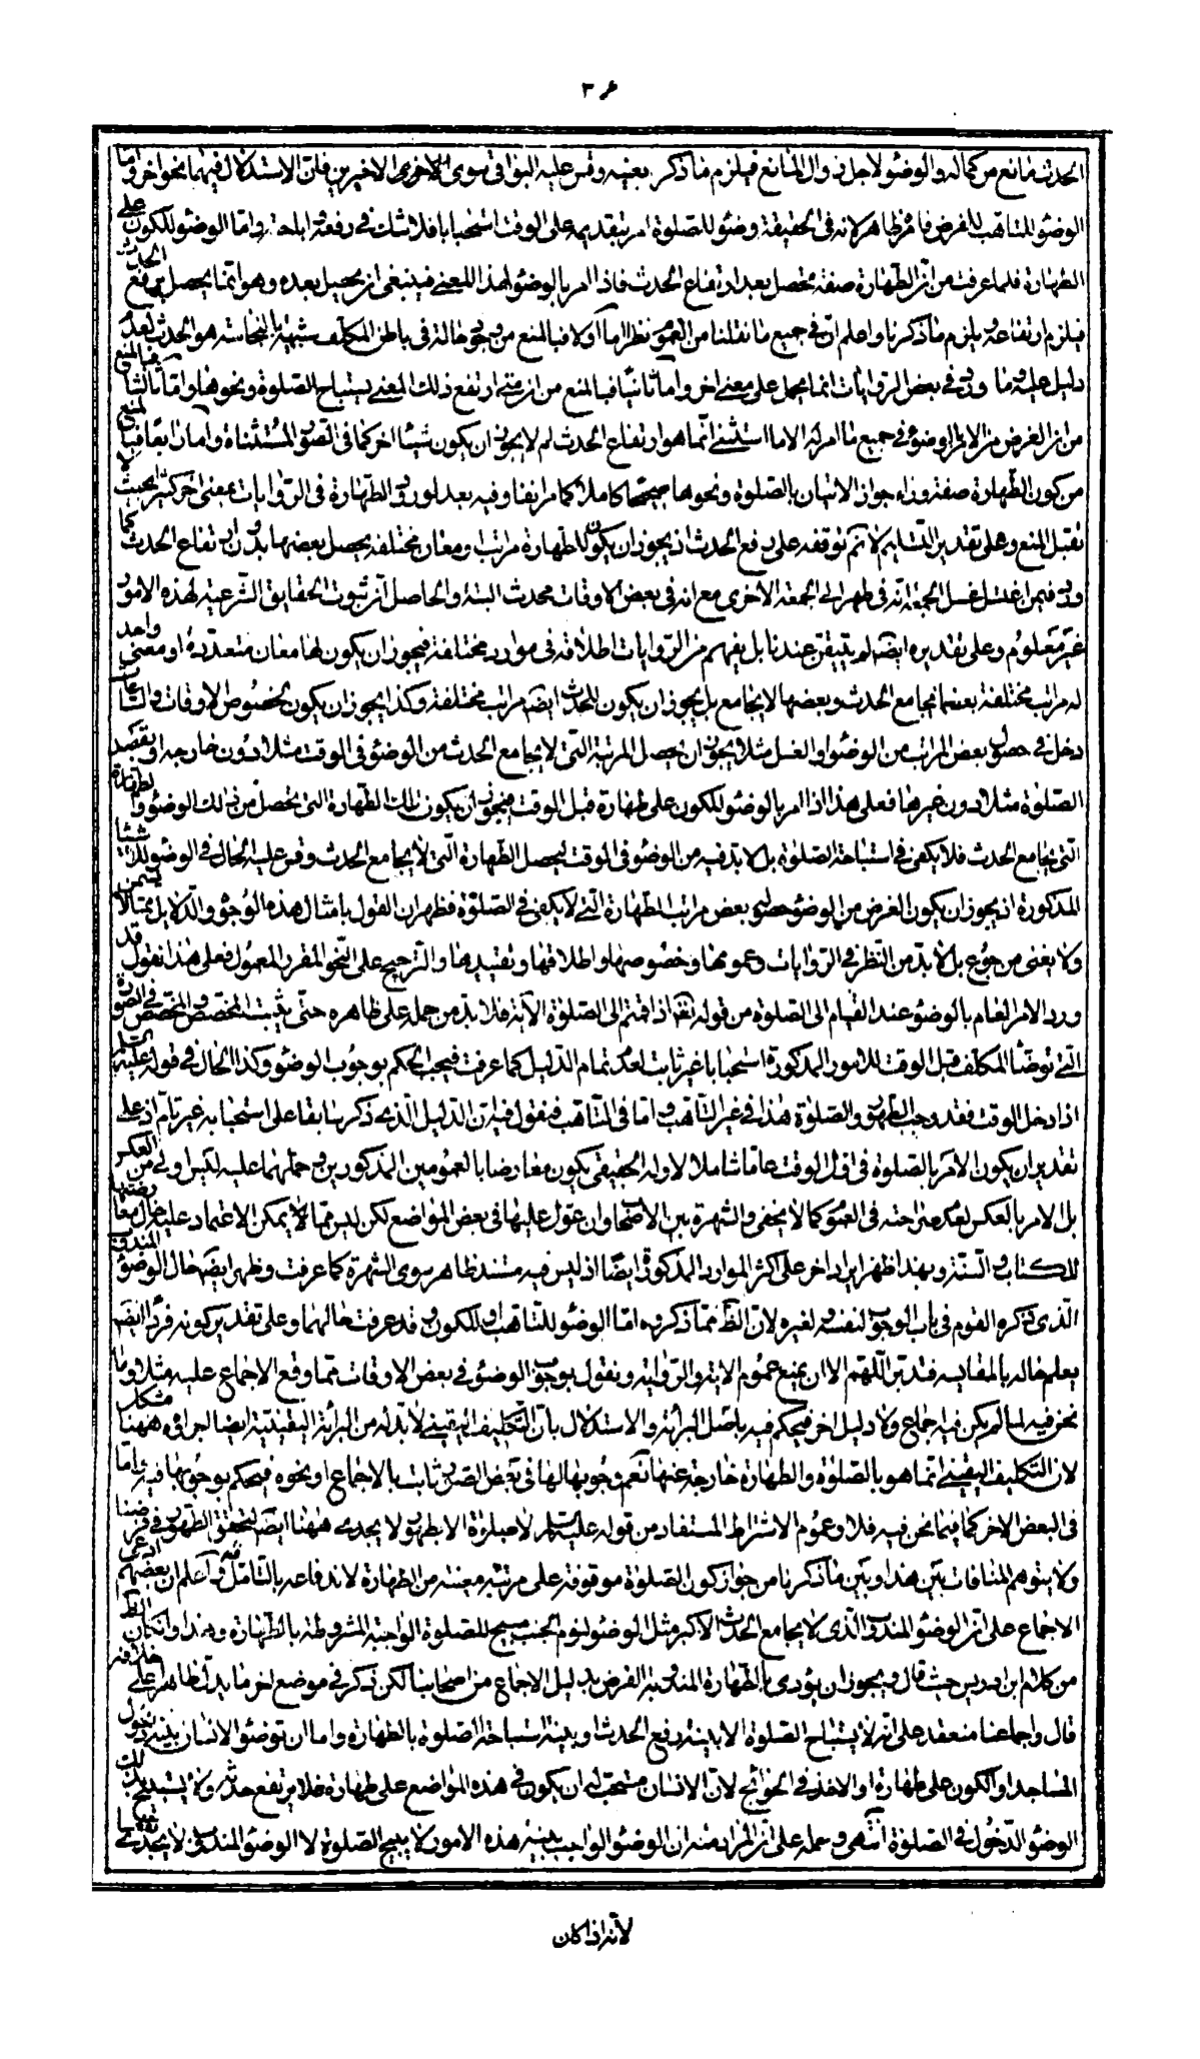 ٣۶
الحدث مانع من كماله والوضوء لاجل زوال المانع فيلزم ما ذكر بعينه وقس عليه البواقى سوى الاخرى الاخيرين فان الاستدلال فيهما بنحو اخر واما
الوضوء للتاهب للفرض فامره ظاهر لانه فى الحقيقة وضوء للصلوة امر بتقديمه على الوقت استحبابا فلا شك فى رفعه واباحته واما الوضوء للكون على
الطهارة فلما عرفت من ان الطهارة صفة تحصل بعد ارتفاع الحدث فاذا امر بالوضوء لهذا المعنى فينبغى ان يحصل بعده وهو انما يحصل برفع الحدث
فيلزم ارتفاعه ويلزم ما ذكرنا واعلم ان فى جميع ما نقلنا من العموم نظرا اما اولا فبالمنع من وجود حالة فى باطن المكلف شبيهة بالنجاسة هو الحدث لعدم
دليل عليه وما ورد فى بعض الروايات انما يحمل على معنى اخر واما ثانيا فبالمنع من انه متى ارتفع ذلك المعنى يستباح الصلوة ونحوها واما ثالثا فبالمنع
من ان الغرض من الامر بالوضوء فى جميع ما امر به الا ما استثنى انما هو ارتفاع الحدث لم لا يجوز ان يكون شيئا اخر كما فى الصور المستثناة واما رابعا فبالمنع
من كون الطهارة صفة وراء جواز الاتيان بالصلوة ونحوها صحيحا كاملا كما مر انفا وفيه بعد لورود الطهارة فى الروايات بمعنى اخر كثيرا بحيث لا
تقبل المنع وعلى تقدير التسليم لا نم توقفه على رفع الحدث اذ يجوز ان يكون للطهارة مراتب ومعان مختلفه يحصل بعضها بدون ارتفاع الحدث كما
ورد فيمن اغتسل غسل الجمعة انه فى طهر الى الجمعة الاخرى مع انه فى بعض الاوقات محدث البتة والحاصل ان ثبوت الحقايق الشرعية لهذه الامور
غير معلوم وعلى تقديره ايضا لم يتيقن عندنا بل يفهم من الروايات اطلاقه فى موارد مختلفة فيجوز ان يكون لها معان متعددة او معنى واحد
له مراتب مختلفة بعضها يجامع الحدث وبعضها لا يجامع بل يجوز ان يكون للحدث ايضا مراتب مختلفة وكذا يجوز ان يكون لخصوص الاوقات والغايات
دخل فى حصول بعض المراتب من الوضوء او الغسل مثلا يجوز ان يحصل المرتبة التى لا يجامع الحدث من الوضوء فى الوقت مثلا دون خارجه او بقصد
الصلوة مثلا دون غيرها فعلى هذا اذا امر بالوضوء للكون على طهارة قبل الوقت فيجوز ان يكون تلك الطهارة التى يحصل من ذلك الوضوء الطهارة
التى يجامع الحدث فلا يكفى فى استباحة الصلوة بل لا بد فيه من الوضوء فى الوقت ليحصل الطهارة التى لا يجامع الحدث وقس عليه الحال فى الوضوء للاشياء
المذكورة اذ يجوز ان يكون الغرض من الوضوء حصول بعض مراتب الطهارة التى لا يكفى فى الصلوة فظهر ان القول بامثال هذه الوجوه والدلايل مما لا يسمن
ولا يغنى من جوع بل لا بد من النظر فى الروايات وعمومها وخصوصها واطلاقها وتقييدها والترجيح على النحو المقرر المعمول فعلى هذا نقول قد
ورد الامر العام بالوضوء عند القيام الى الصلوة من قوله تع اذا قمتم الى الصلوة الاية فلا بد من حمله على ظاهره حتى يثبت المخصص والمخصص فى الصورة
التى توضا المكلف قبل الوقت للامور المذكورة استحبابا غير ثابت لعدم تمام الدليل كما عرفت فيجب الحكم بوجوب الوضوء وكذا الحال فى قوله عليه السلم
اذا دخل الوقت فقد وجب الطهور والصلوة هذا فى غير التاهب واما فى التاهب فنقول فيه ان الدليل الذى ذكرنا سابقا على استحبابه غير تام اذ على
تقدير ان يكون الامر بالصلوة فى اول الوقت عاما شاملا لاوله الحقيقى يكون معارضا بالعمومين المذكورين وحملهما عليه ليس اولى من العكس
بل الامر بالعكس لعدم صراحته فى العموم كما لا يخفى والشهرة بين الاصحاب وان عول عليها فى بعض المواضع لكن ليس مما لا يمكن الاعتماد عليه حال معارضتها
للكتاب والسنة وبهذا ظهر ايراد اخر على اكثر الموارد المذكورة ايضا اذ ليس فيه مستند ظاهر سوى الشهرة كما عرفت وظهر ايضا حال الوضوء المندوب
الذى ذكره القوم فى باب الوجوب لنفسه ولغيره لان الظ مما ذكروه اما الوضوء للتاهب او للكون وقد عرفت حالهما وعلى تقدير كونه فردا ايضا
يعلم حاله بالمقايسه فتدبر اللهم الا ان يمنع عموم الاية والرواية ونقول بوجوب الوضوء فى بعض الاوقات مما وقع الاجماع عليه مثلا وما
نحن فيه لما لم يكن فيه اجماع ولا دليل اخر فيحكم فيه باصل البرائة والاستدلال بان التكليف اليقينى لا بد له من البرائة اليقينية ايضا اجراؤه ههنا مشكل
لان التكليف اليقينى انما هو بالصلوة والطهارة خارجة عنها نعم وجوبها لها فى بعض الصور ثابت بالاجماع او نحوه فيحكم بوجوبها فيه واما
فى البعض الاخر كما فيما نحن فيه فلا وعموم الاشتراط المستفاد من قوله عليه السلم لا صلوة الا بطهور لا يجدى ههنا ايضا لتحقق الطهور فى فرضنا
ولا يتوهم المنافات بين هذا وبين ما ذكرنا من جواز كون الصلوة موقوفة على مرتبة معينة من الطهارة لاندفاعه بالتامل فيه واعلم ان بعضهم ادعى
الاجماع على ان الوضوء المندوب الذى لا يجامع الحدث الاكبر مثل الوضوء لنوم الجنب مبيح للصلوة الواجبة المشروطة بالطهارة وهذا وان كان الظ
من كلام ابن ادريس حيث قال ويجوز ان يؤدى بالطهارة المندوبة الفرض بدليل الاجماع من اصحابنا لكن ذكر فى موضع اخر ما يدل ظاهرا على خلافه
قال واجماعنا منعقد على انه لا يستباح الصلوة الا بنية رفع الحدث او بنية استباحة الصلوة بالطهارة واما ان توضؤ الانسان بنية دخول
المساجد او الكون على طهارة او الاخذ فى الحوائج لان الانسان مستحب له ان يكون فى هذه المواضع على طهارة فلا يرتفع حدثه ولا يستبيح بذلك
الوضوء الدخول فى الصلوة انتهى وحمله على ان المراد منه ان الوضوء الواجب بنية هذه الامور لا يبيح الصلوة لا الوضوء المندوب لا يجدى
لانه اذا كان